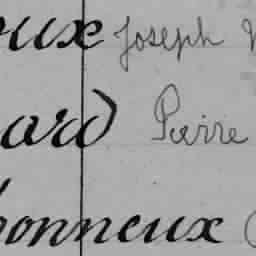 oux Joseph
ard Pierre
bonneux